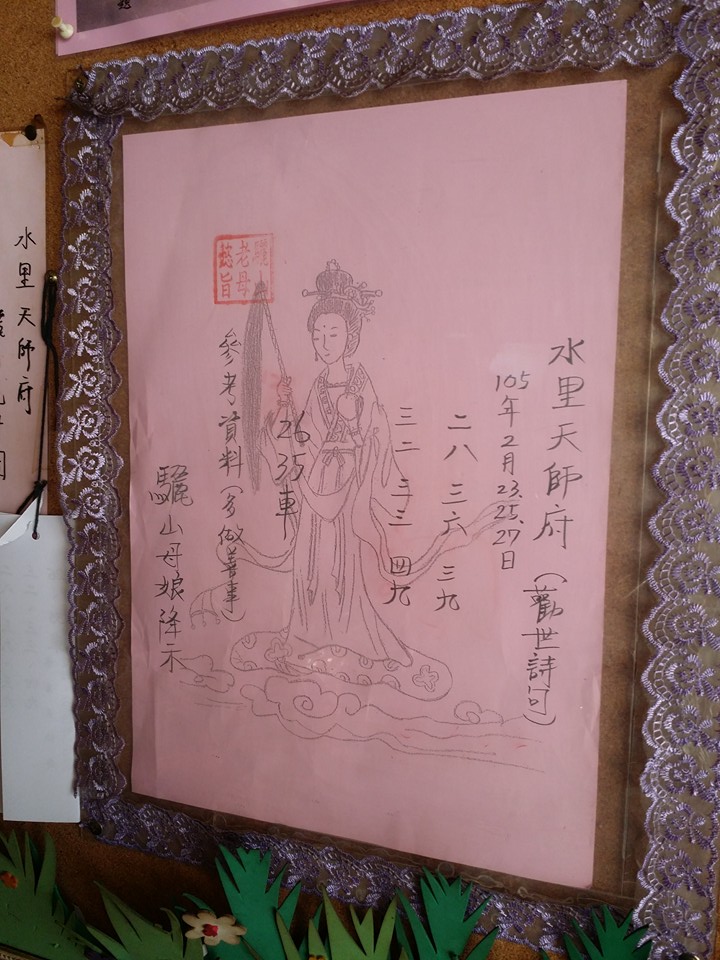 水里天師府（勸世詩句）
105年2月23.25.27日
二八 三六 三九
三二 三三 四九
26 35 車
參考資料（多做善事）
驪山母娘降示
驪山老母懿旨
水里天師府